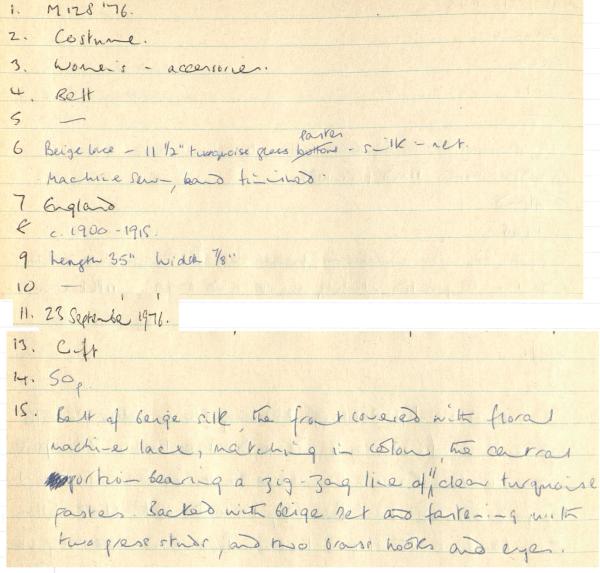 1. M128 '76.
2. Costume.
3. Women's - accessories.
4. Belt
5 —
6 Beige lace - 11 1/2" turquoise glass pastes - silk - net.
Machine sewn, hand finished.
7 England
8 c. 1900-1915.
9 Length 35" Width 7/8"
10 —
11. 23 September 1976.
13. Gift
14. 50p.
15. Belt of beige silk, the front covered with floral
machine lace, matching in colour, the central
portion bearing a zig-zag line of 11 clear turquoise
pastes. Backed with beige net and fastening with
two press studs, and two brass hooks and eyes.